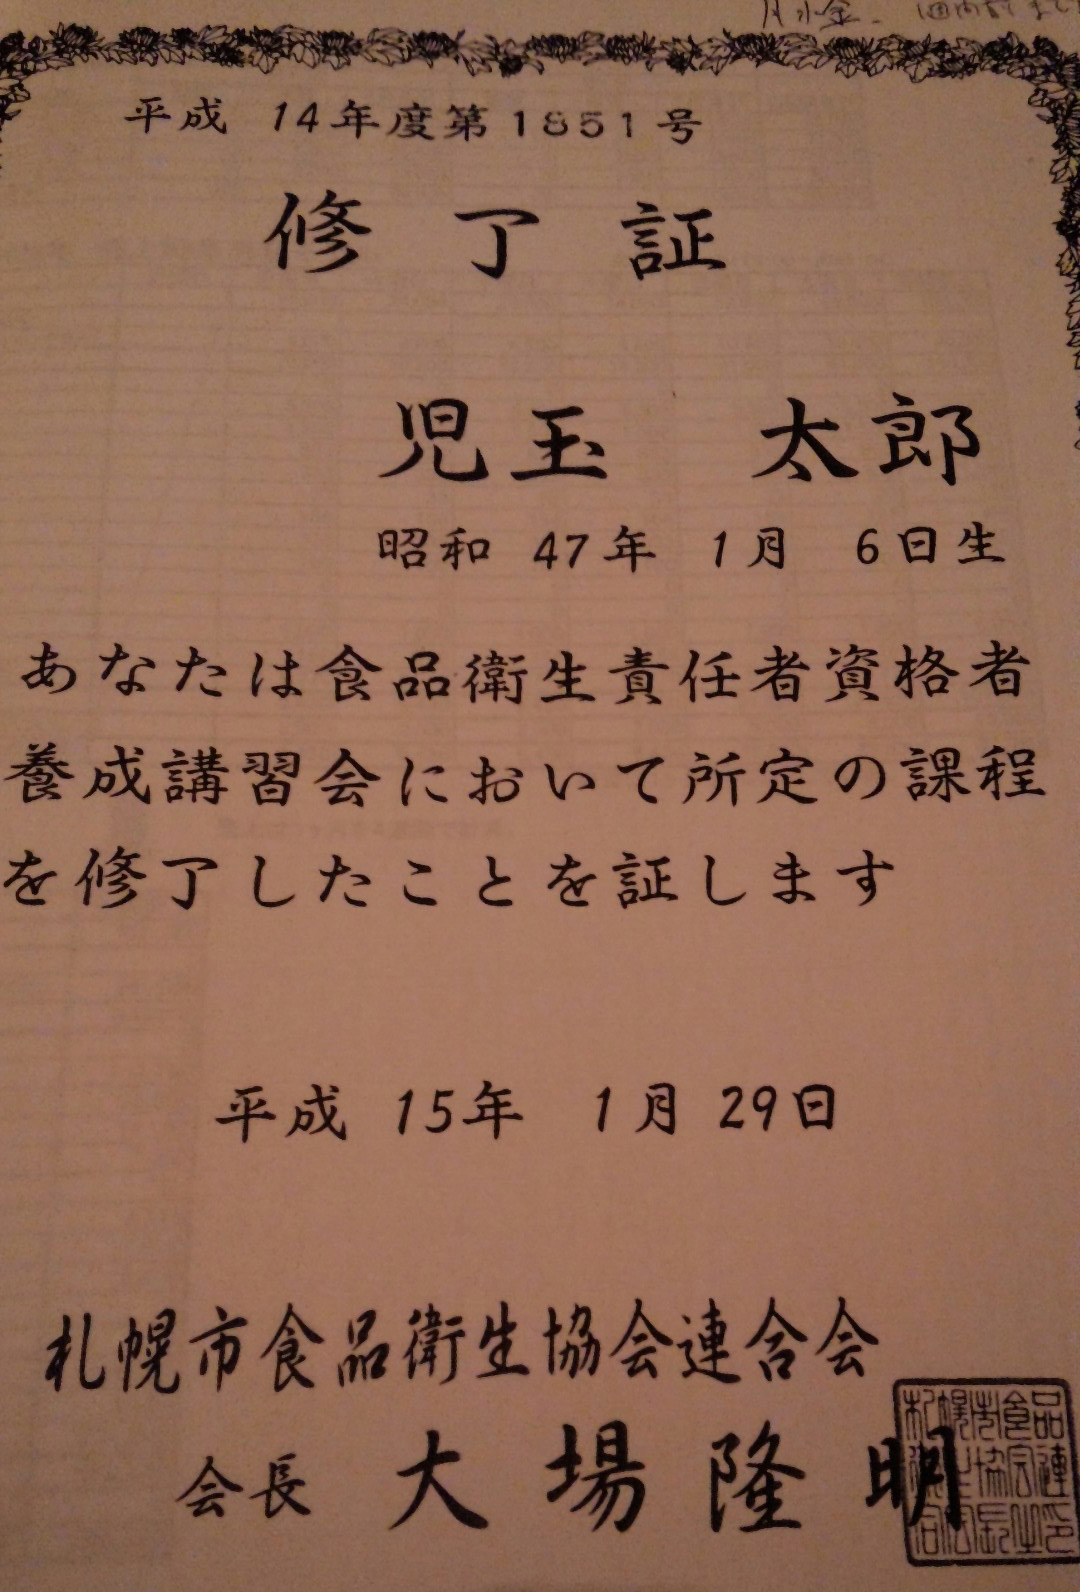 平成 14年度第1851号
修了証
児玉 太郎
昭和 47年 1月 6日生
あなたは食品衛生責任者資格者
養成講習会において所定の課程
を修了したことを証します
平成 15年 1月 29日
札幌市食品衛生協会連合会
会長 大場隆明